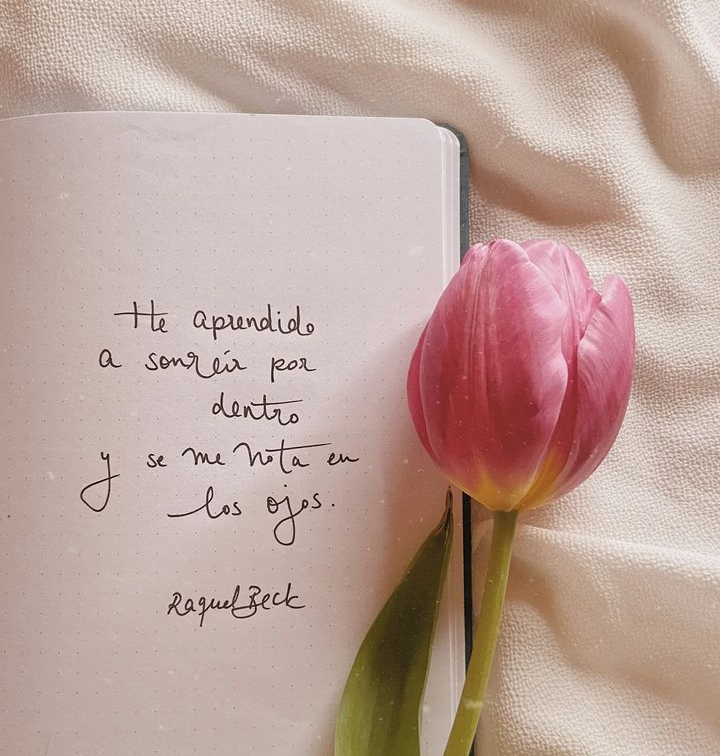 He aprendido
a sonreír por
dentro
y se me nota en
los ojos.
Raquel Beck